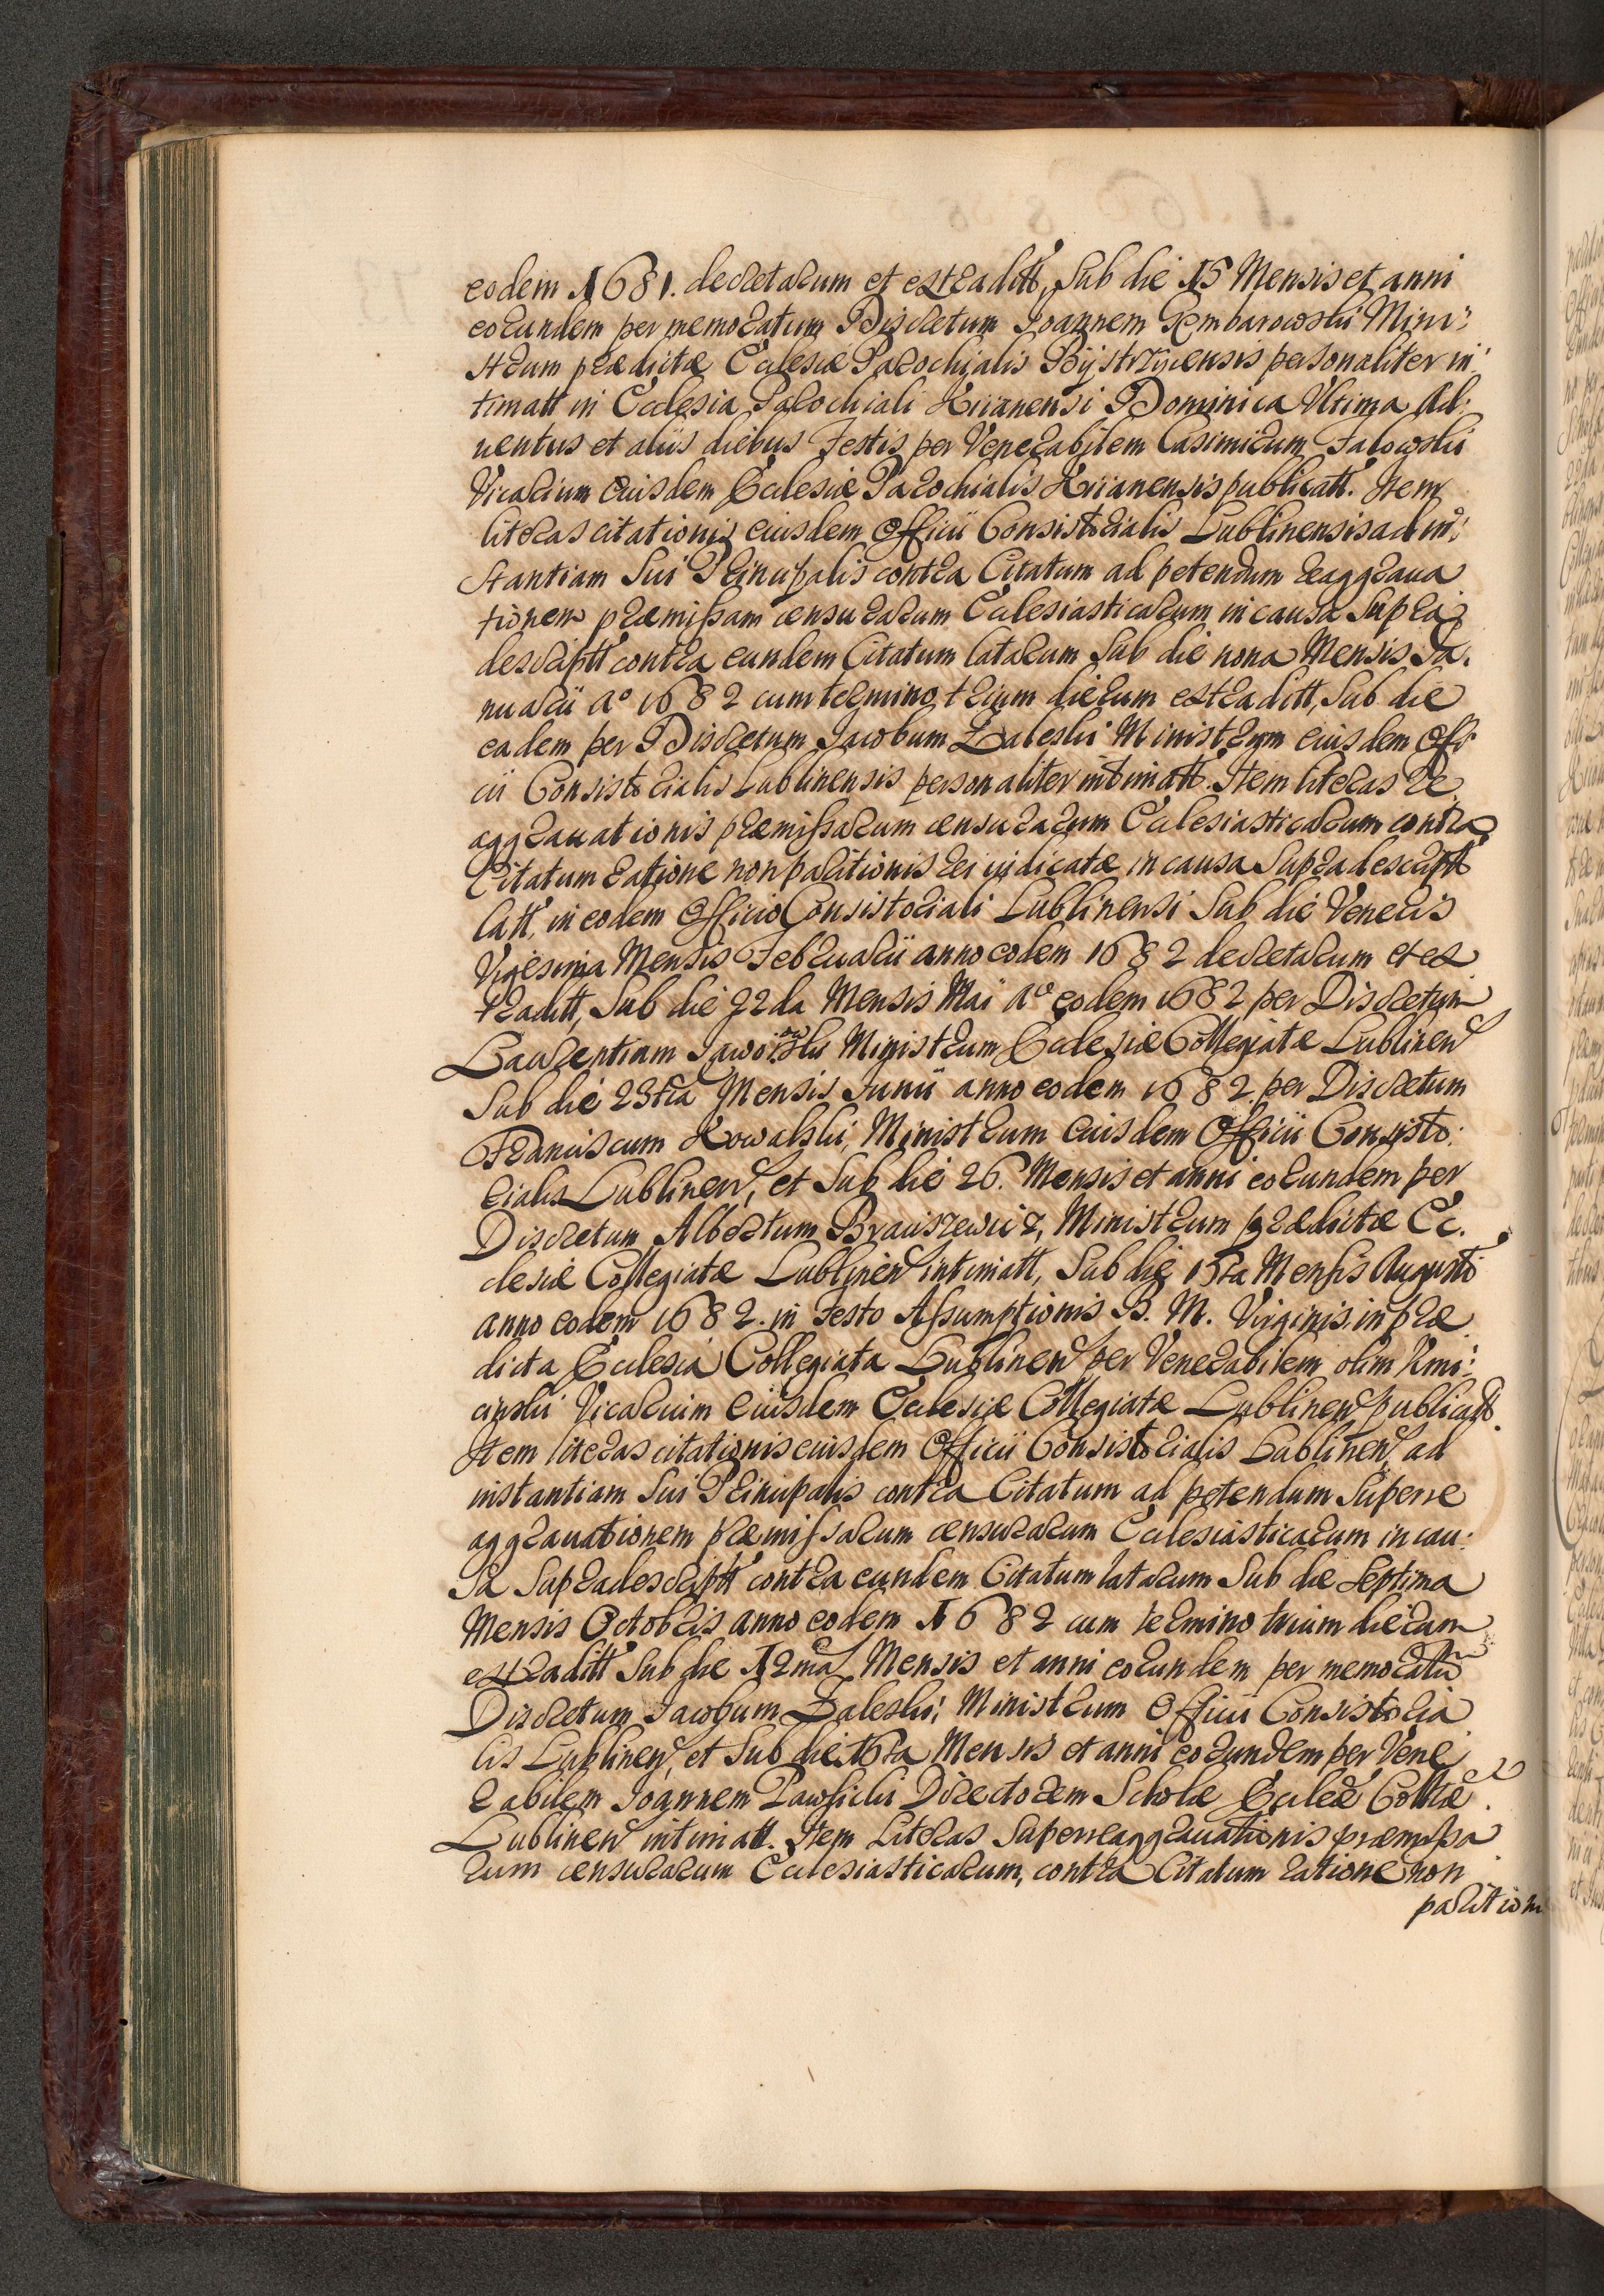 eodem 1681. decretarum et extraditt, Sub die 15 Mensis et anni
eorundem per memoratum Discretum Joannem Rembarowski Mini:
strum prædictæ Ecclesiæ Parochialis Bijstrzycensis personaliter in:
timatt in Ecclesia Parochiali Krianensi Dominica Vltima Ad:
uentus et aliis diebus Festis per Venerabilem Casimirum Falowski
Vicarium eiusdem Ecclesiæ Parochialis Krianensis publicatt. Item
literas citationis eiusdem Officii Consistorialis Lublinensis ad in:
stantiam Sui Principalis contra Citatum ad petendum reaggraua
tionem præmissam censurarum Ecclesiasticarum in causa Supra
descriptt contra eundem Citatum latarum Sub die nona Mensis Ja.
nuarii Aº 1682 cum termino trium dierum extraditt, Sub die
eadem per Discretum Jacobum Zaleski Ministrum eiusdem Offi
cii Consistorialis Lublinensis personaliter intimatt. Item literas Re
aggrauationis præmissarum censurarum Ecclesiasticarum contra
Citatum ratione non paritionis rei iudicatæ in causa Supradescriptt
latt, in eodem Officio Consistoriali Lublinensi Sub die Veneris
Vigesima Mensis Februarii anno eodem 1682 decretarum et ex
traditt, Sub die 22da Mensis Mai Aº eodem 1682 per Discretum
Laurentium Jaworowski Ministrum Ecclesiæ Collegiatæ Lublinen
Sub die 23tia Mensis Junii anno eodem 1682. per Discretum
Franciscum Kowalski, Ministrum eiusdem Officii Consisto:
rialis Lublinen, et Sub die 26. Mensis et anni eorundem per
Discretum Albertum Braiszewicz, Ministrum prædictæ Ec.
clesiæ Collegiatæ Lublinen intimatt, Sub die 15ta Mensis Augusti
anno eodem 1682. in Festo Assumptionis B. M. Virginis in præ
dicta Ecclesia Collegiata Lublinen per Venerabilem olim Kmi:
cinski Vicarium eiusdem Ecclesiæ Collegiatæ Lublinen publicatt.
Item literas citationis eiusdem Officii Consistorialis Lublinen, ad
instantiam Sui Principalis contra Citatum ad petendum Superre
aggrauationem præmissarum censurarum Ecclesiasticarum in cau:
sa Supradescriptt contra eundem Citatum latarum Sub die Septima
Mensis Octobris anno eodem 1682 cum termino trium dierum
extraditt Sub die 12ma Mensis et anni eorundem per memoratu
Discretum Jacobum Zaleski, Ministrum Officii Consistoria
lis Lublinen, et Sub die 16ta Mensis et anni eorundem per Vene
rabilem Joannem Pawsicki Directorem Scholæ Ecclæ Collæ
Lublinen intimatt. Item Literas Superreaggrauationis præmissa
rum censurarum Ecclesiasticarum, contra Citatum ratione non
parition